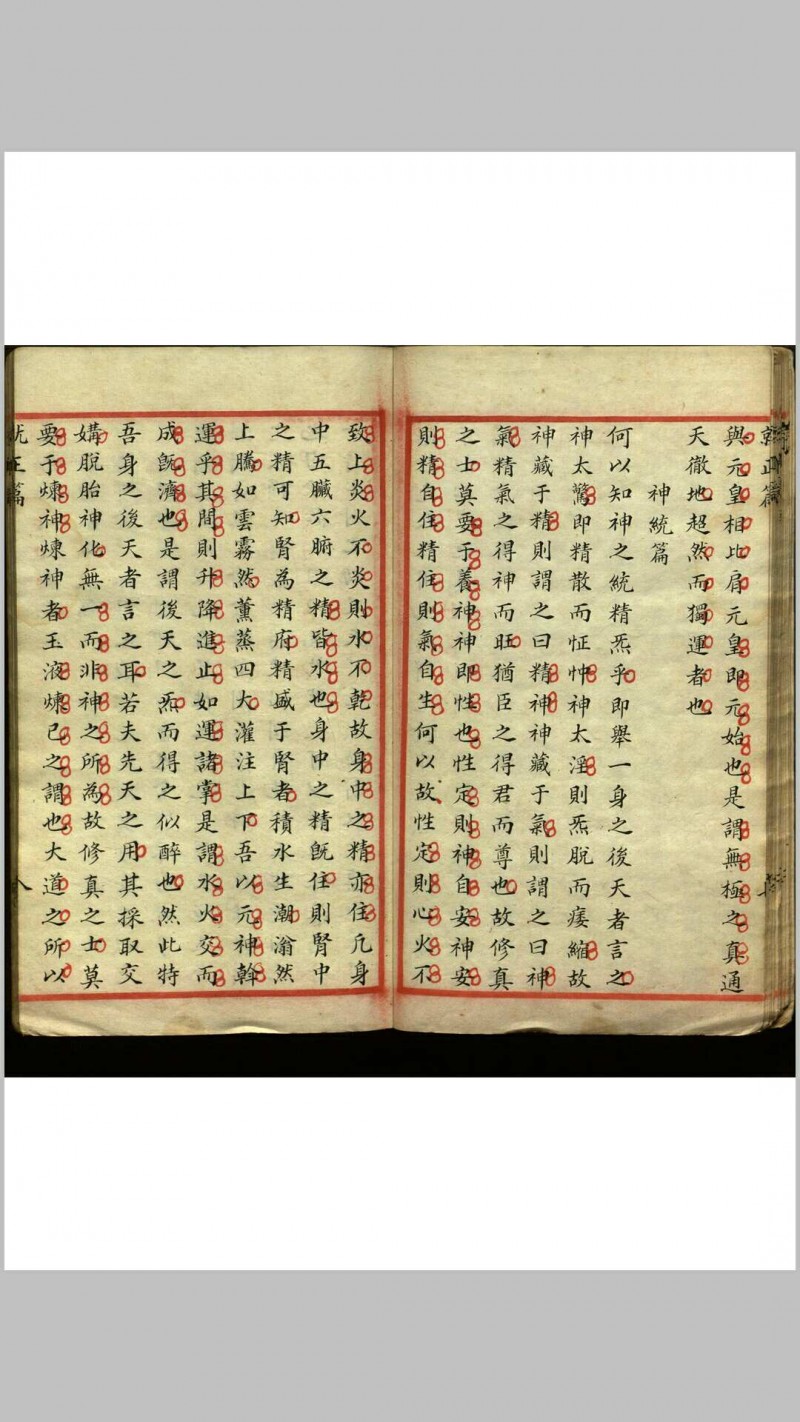 與元皇相比肩元皇即元始也是謂無極之真通
天徹地超然而獨運者也
神統篇
何以知神之統精炁乎即舉一身之後天者言之
神太驚即精散而怔忡神太淫則炁脫而痿縮故
神藏于精則謂之曰精神神藏于氣則謂之曰神
氣精氣之得神而旺猶臣之得君而尊也故修真
之士莫要于養神神即性也性定則神自安神安
則精自住精住則氣自生何以故性定則心火不
致上炎火不炎則水不乾故身中之精亦住凡身
中五臟六腑之精皆水也身中之精既住則腎中
之精可知腎為精府精盛于腎者積水生潮滃然
上騰如雲霧然薰蒸四大灌注上下吾以元神斡
運乎其間則升降進止如運諸掌是謂水火交而
成既濟也是謂後天之炁而得之似醉也然此特
吾身之後天者言之耳若夫先天之用其採取交
媾脫胎神化無一而非神之所為故修真之士莫
要于煉神煉神者玉液煉己之謂也大道之所以
就正篇
八